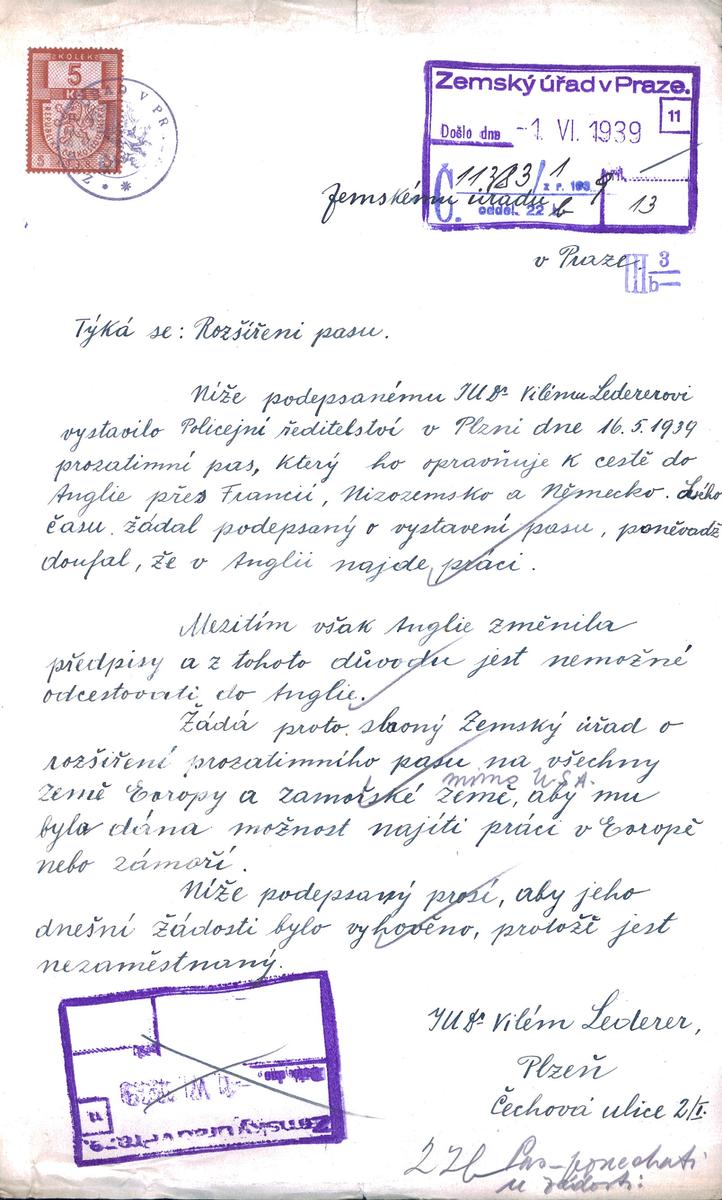 KOLEK
5
Zemský úřad v Praze.
11
Došlo dne -1. VI. 1939
Č. 11383/1 z r. 193 9
odděl. 22 b
13
Zemskému úřadu
v Praze.
III b 3
Týká se: Rozšíření pasu.
Níže podepsanému JUDr Vilému Ledererovi
vystavilo Policejní ředitelství v Plzni dne 16.5.1939
prozatimní pas, který ho opravňuje k cestě do
Anglie přes Francii, Nizozemsko a Německo. Svého
času žádal podepsaný o vystavení pasu, poněvadž
doufal, že v Anglii najde práci.
Mezitím však Anglie změnila
předpisy a z tohoto důvodu jest nemožné
odcestovati do Anglie.
Žádá proto slavný Zemský úřad o
rozšíření prozatimního pasu na všechny
mimo USA.
země Evropy a zamořské země, aby mu
byla dána možnost najíti práci v Evropě
nebo zámoří.
Níže podepsaný prosí, aby jeho
dnešní žádosti bylo vyhověno, protože jest
nezaměstnaný.
JUDr Vilém Lederer,
Plzeň
Čechová ulice 2/I.
Zemský úřad v Praze.
11
Došlo dne -1. VI. 1939
22b Pas ponechati
u žádosti.